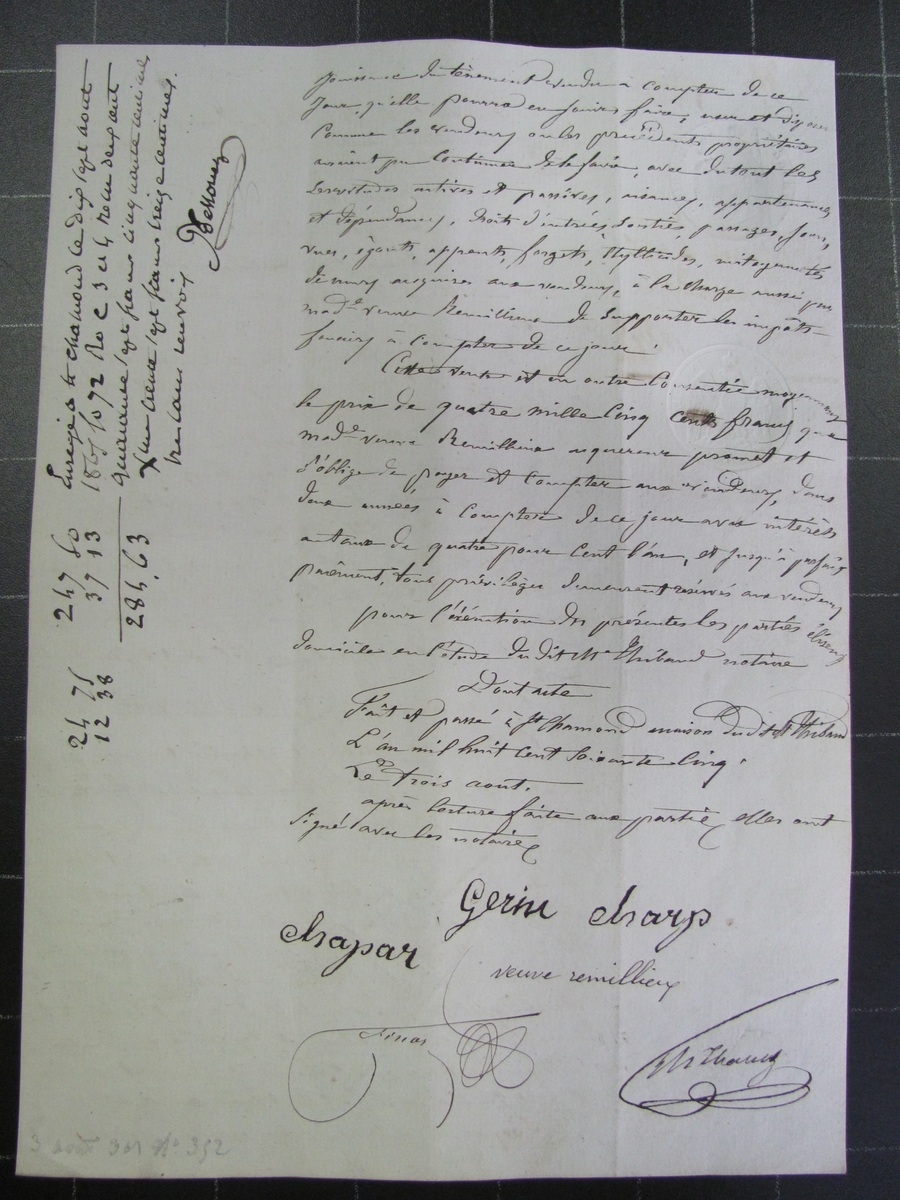 jouissance du tènement vendu à compter de ce
jour, qu'elle pourra en jouir, faire, user et disposer
comme les vendeurs ou les précédents propriétaires
avaient pu coutume de le faire, avec du tout les
servitudes actives et passives, aisances, appartenances
et dépendances, droits d'entrées, sorties, passages, jours,
vues, égouts, appents, forgets, styllicides, mitoyennetés
de murs acquises aux vendeurs, à la charge aussi par
made veuve Remillieux de supporter les impôts
fonciers à compter de ce jour.
Cette vente est en outre consentie moyennant
le prix de quatre mille cinq cents francs que
made veuve Remillieux acquereur promet et
s'oblige de payer et compter aux vendeurs, dans
deux années à compter de ce jour avec intérêts
au taux de quatre pour cent l'an, et jusqu'à parfait
paiement, tous privilèges demeurant réservés aux vendeurs
pour l'exécution des présentes les parties élisent
domicile en l'étude du dit Me Thibaud notaire
Dont acte
Fait et passé à St Chamond maison du dit Me Thibaud
L'an mil huit cent soixante cinq.
Le trois aout.
après lecture faite aux parties elles ont
signé avec les notaires
Gerin charp
chapar
veuve remillieux
Finas
Enregé à St chamond le dix sept aout
1865 fo 72 Ro c 3 et 4 reçu deux cent
quarante sept francs cinquante centimes
Xme trente sept francs treize centimes
renvoi
247 50
37 13
284.63
24 75
12 38
3 août No 352